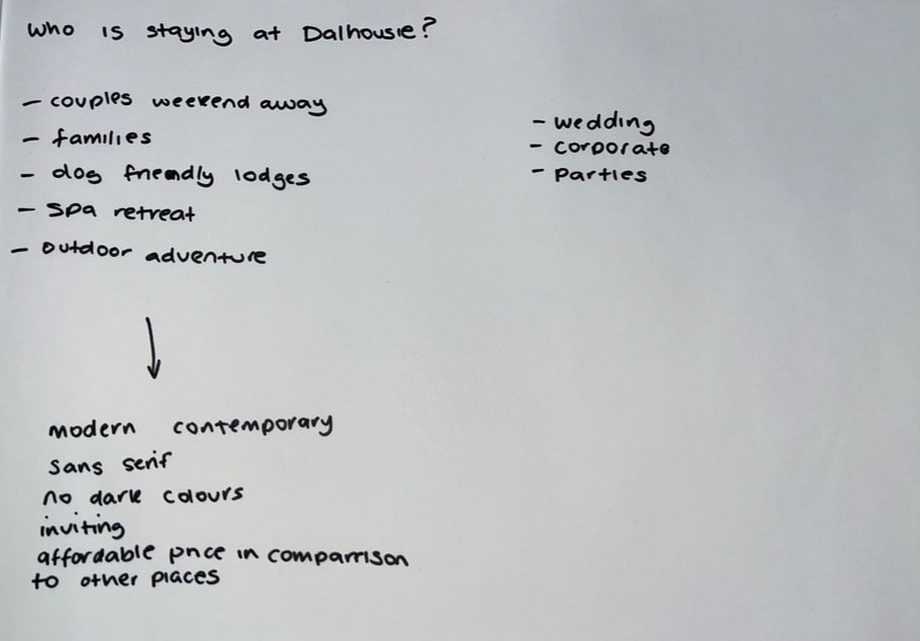 Who is staying at Dalhousie?
- couples weekend away
- families
- dog friendly lodges
- spa retreat
- outdoor adventure
- wedding
- corporate
- parties
modern contemporary
sans serif
no dark colours
inviting
affordable price in comparrison
to other places